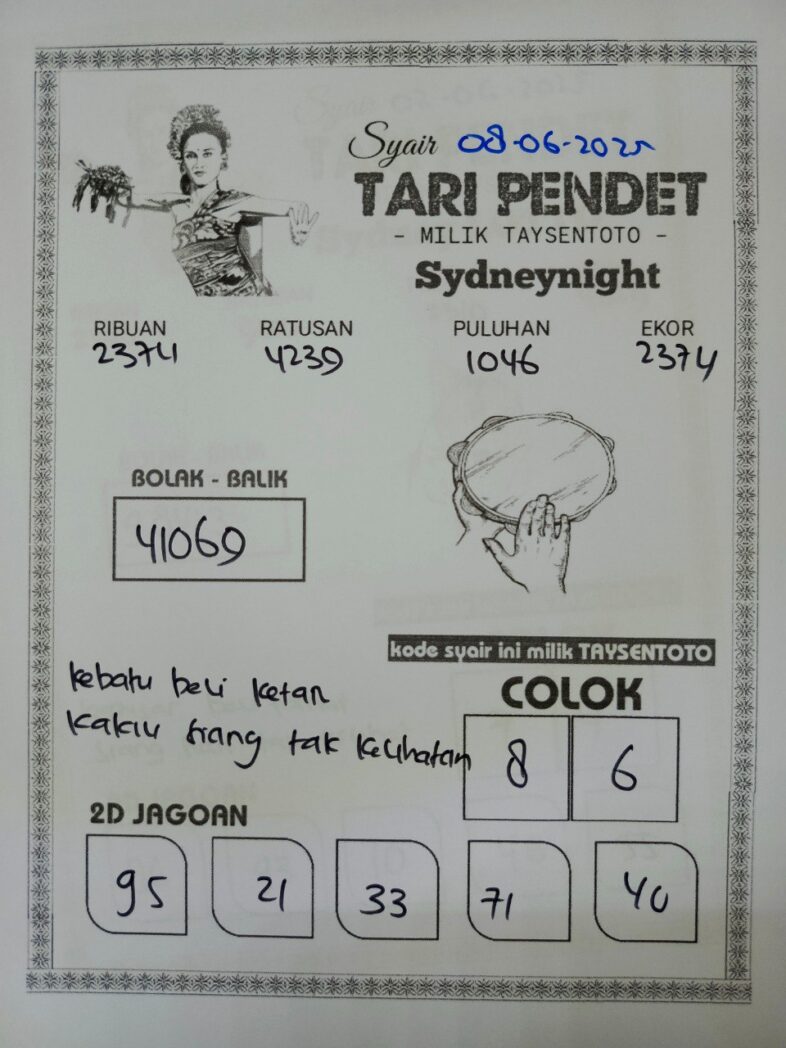 Syair 08-06-2025
TARI PENDET
- MILIK TAYSENTOTO -
Sydneynight
RIBUAN RATUSAN PULUHAN EKOR
2374 4239 1046 2374
BOLAK - BALIK
41069
kode syair ini milik TAYSENTOTO
COLOK
8 6
kebatu beli ketan
kakiu trang tak kelihatan
2D JAGOAN
95 21 33 71 40